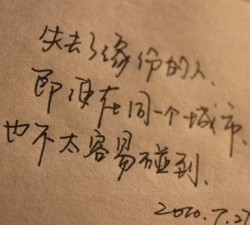 失去了缘份的人、
即使在同一个城市、
也不太容易碰到、
2010.7.27